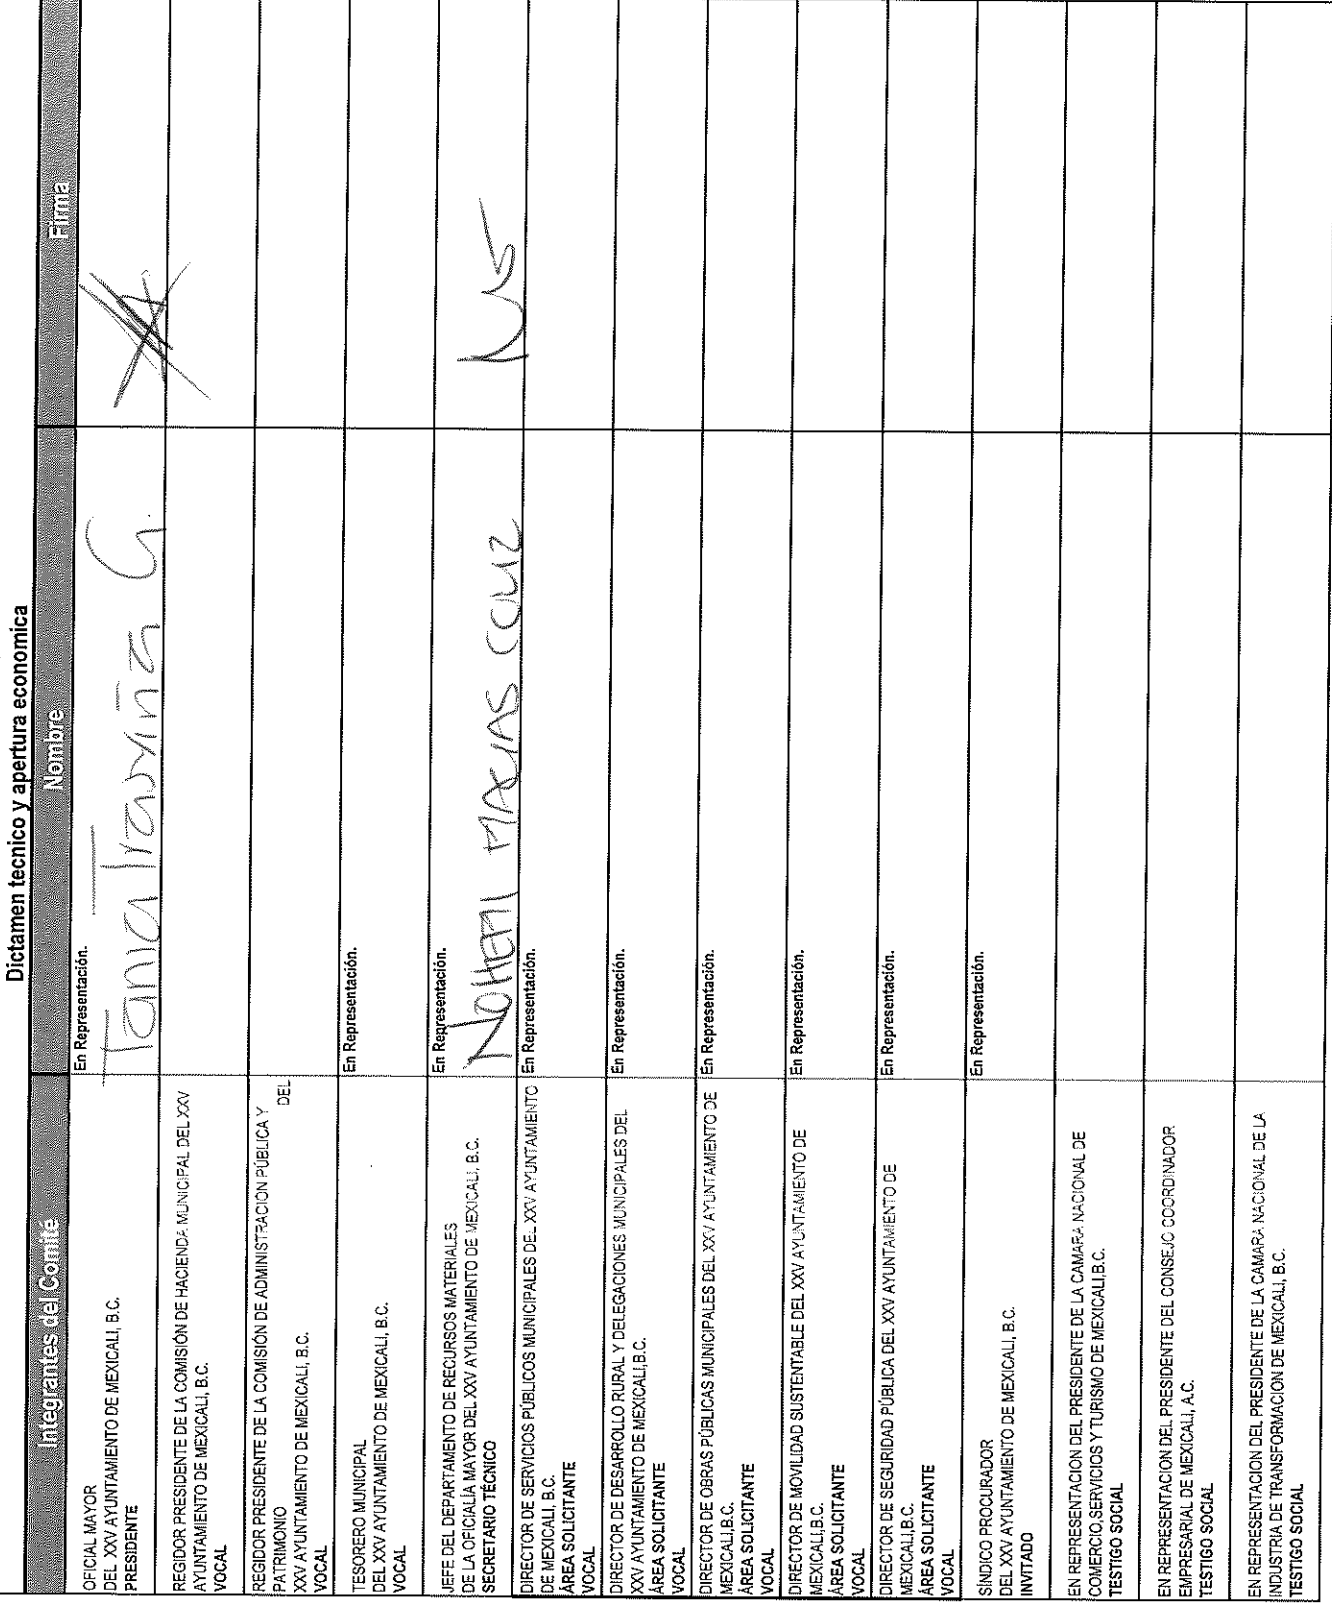 Dictamen tecnico y apertura economica
Integrantes del Comité Nombre Firma
OFICIAL MAYOR
DEL XXV AYUNTAMIENTO DE MEXICALI, B.C.
PRESIDENTE
En Representación.
Tania Traviña G.
REGIDOR PRESIDENTE DE LA COMISIÓN DE HACIENDA MUNICIPAL DEL XXV
AYUNTAMIENTO DE MEXICALI, B.C.
VOCAL
REGIDOR PRESIDENTE DE LA COMISIÓN DE ADMINISTRACIÓN PÚBLICA Y
PATRIMONIO DEL
XXV AYUNTAMIENTO DE MEXICALI, B.C.
VOCAL
TESORERO MUNICIPAL
DEL XXV AYUNTAMIENTO DE MEXICALI, B.C.
VOCAL
En Representación.
JEFE DEL DEPARTAMENTO DE RECURSOS MATERIALES
DE LA OFICIALÍA MAYOR DEL XXV AYUNTAMIENTO DE MEXICALI, B.C.
SECRETARIO TÉCNICO
En Representación.
NOHEMI MACIAS CRUZ
DIRECTOR DE SERVICIOS PÚBLICOS MUNICIPALES DEL XXV AYUNTAMIENTO
DE MEXICALI, B.C.
ÁREA SOLICITANTE
VOCAL
En Representación.
DIRECTOR DE DESARROLLO RURAL Y DELEGACIONES MUNICIPALES DEL
XXV AYUNTAMIENTO DE MEXICALI,B.C.
ÁREA SOLICITANTE
VOCAL
En Representación.
DIRECTOR DE OBRAS PÚBLICAS MUNICIPALES DEL XXV AYUNTAMIENTO DE
MEXICALI,B.C.
ÁREA SOLICITANTE
VOCAL
En Representación.
DIRECTOR DE MOVILIDAD SUSTENTABLE DEL XXV AYUNTAMIENTO DE
MEXICALI,B.C.
ÁREA SOLICITANTE
VOCAL
En Representación.
DIRECTOR DE SEGURIDAD PÚBLICA DEL XXV AYUNTAMIENTO DE
MEXICALI,B.C.
ÁREA SOLICITANTE
VOCAL
En Representación.
SÍNDICO PROCURADOR
DEL XXV AYUNTAMIENTO DE MEXICALI, B.C.
INVITADO
En Representación.
EN REPRESENTACION DEL PRESIDENTE DE LA CAMARA NACIONAL DE
COMERCIO,SERVICIOS Y TURISMO DE MEXICALI,B.C.
TESTIGO SOCIAL
EN REPRESENTACION DEL PRESIDENTE DEL CONSEJO COORDINADOR
EMPRESARIAL DE MEXICALI, A.C.
TESTIGO SOCIAL
EN REPRESENTACION DEL PRESIDENTE DE LA CAMARA NACIONAL DE LA
INDUSTRIA DE TRANSFORMACION DE MEXICALI, B.C.
TESTIGO SOCIAL